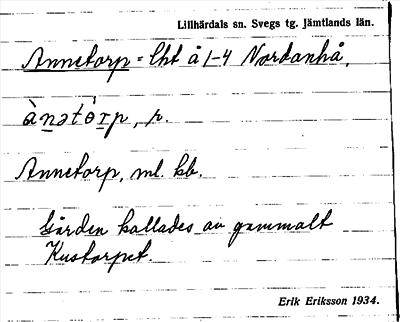 Lillhärdals sn. Svegs tg. Jämtlands län.
Annetorp = lht å 1-4 Nordanhå,
ànətórp, r.
Annetorp, ml. kb.
Gården kallades av gammalt
Kustorpet.
Erik Eriksson 1934.